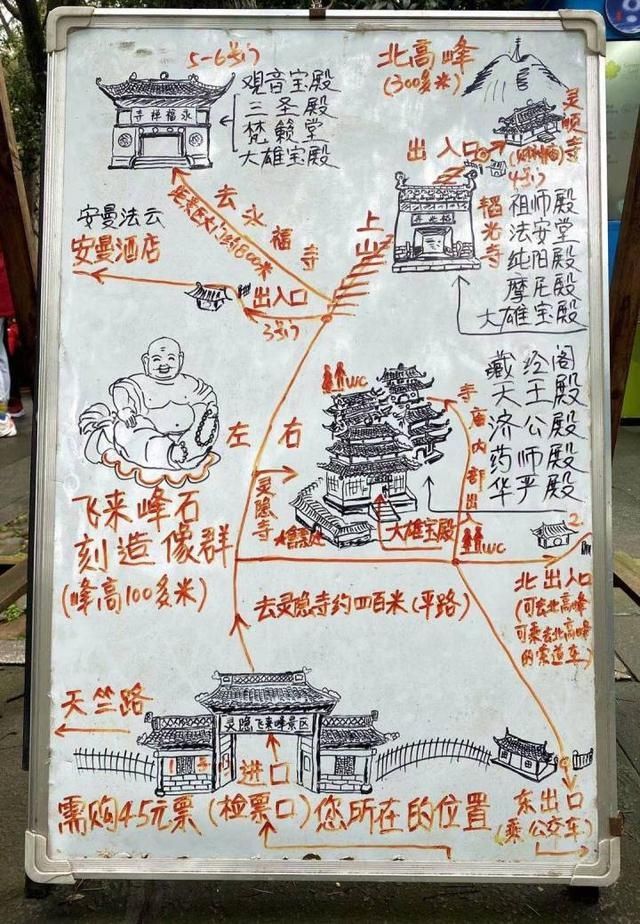 5-6号门
永福禅寺
观音宝殿
三圣殿
梵籁堂
大雄宝殿
北高峰
(300多米)
灵顺寺
出入口
4号门
韬光寺
祖师殿
法安堂
纯阳殿
摩尼殿
大雄宝殿
上山
去永福寺
安曼法云
安曼酒店
出入口
3号门
藏经阁
天王殿
济公殿
药师殿
华严殿
WC
左 右
寺庙内部出入
灵隐寺
大雄宝殿
WC
飞来峰石
刻造像群
(峰高100多米)
去灵隐寺约四百米(平路)
2
北出入口
(可去北高峰
可乘去北高峰
的索道车)
天竺路
灵隐飞来峰景区
进口
需购45元票(检票口)您所在的位置
东出口
(乘公交车)